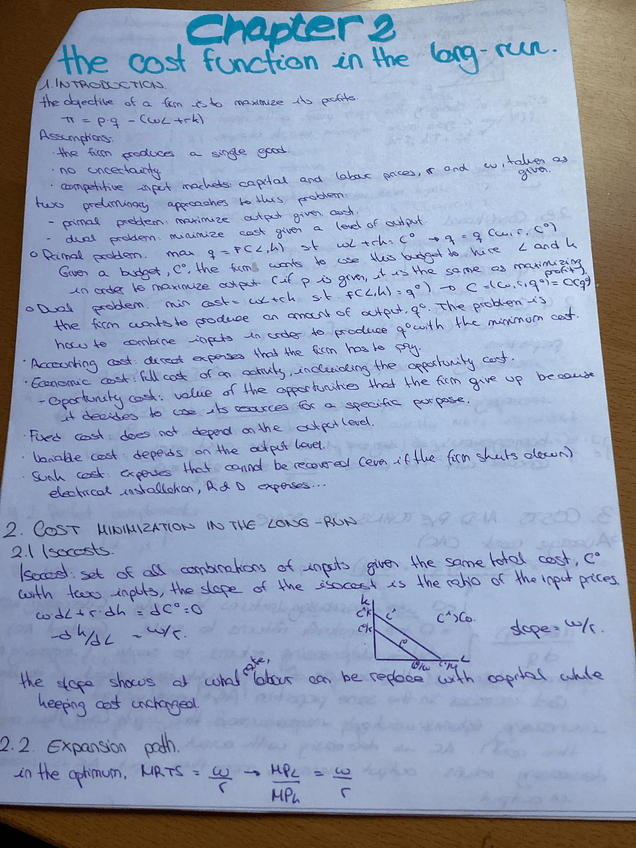 Chapter 2
the cost function in the long-run.
1. INTRODUCTION
the objective of a firm is to maximize its profits.
π = p·q - (wL + rk)
Assumptions:
· the firm produces a single good
· no uncertainty
· competitive input markets: capital and labour prices, r and w, taken as given.
two preliminary approaches to this problem.
- primal problem: maximize output given cost.
- dual problem: minimize cost given a level of output.
o Primal problem. max q = F(L,k) st wL + rk = C° → q = q(w, r, C°)
Given a budget, C°, the firm wants to use this budget to hire L and k
in order to maximize output (if p is given, it is the same as maximizing profits)
o Dual problem min cost = wL + rk s.t. f(L,k) = q° → C = C(w, r, q°) = C(q)
the firm wants to produce an amount of output, q°. The problem is
how to combine inputs in order to produce q° with the minimum cost.
· Accounting cost: direct expenses that the firm has to pay.
· Economic cost: full cost of an activity, including the opportunity cost.
- Oportunity cost: value of the opportunities that the firm give up because
it decides to use its resources for a specific purpose.
· Fixed cost: does not depend on the output level.
· Variable cost: depends on the output level.
· Sunk cost: expenses that cannot be recovered (even if the firm shuts down)
electrical installation, R&D expenses...
2. COST MINIMIZATION IN THE LONG-RUN
2.1 Isocosts.
Isocost: set of all combinations of inputs given the same total cost, C°
with two inputs, the slope of the isocost is the ratio of the input prices.
w dL + r · dk = dC° = 0
-dk/dL = w/r.
k
C'/r
C°/r
C'
C°
C°/w
C'/w
L
C'>C°
slope = w/r.
the slope shows at what rate, labour can be replace with capital while
keeping cost unchanged.
2.2. Expansion path.
in the optimum, MRTS = w/r → MPL/MPk = w/r